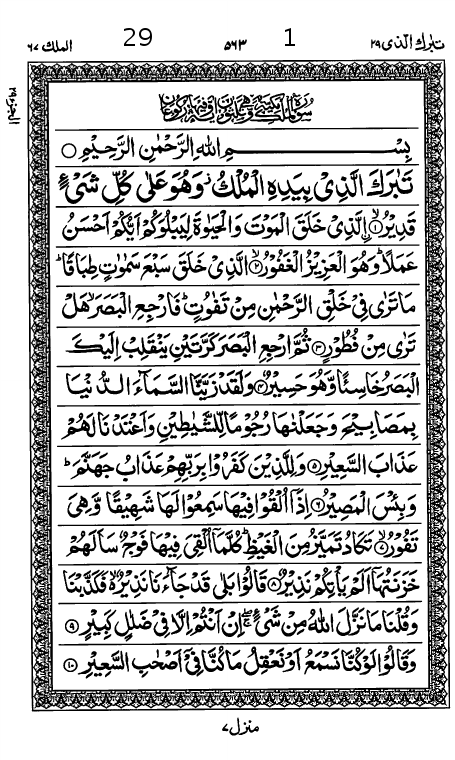 تبٰرك الذى ٢٩ 1 ٥٦٣ 29 الملك ٦٧
بِسْمِ اللهِ الرَّحْمٰنِ الرَّحِيْمِ ○
تَبٰرَكَ الَّذِيْ بِيَدِهِ الْمُلْكُ ۫ وَهُوَ عَلٰى كُلِّ شَيْءٍ
قَدِيْرُۨ ۝١ الَّذِيْ خَلَقَ الْمَوْتَ وَالْحَيٰوةَ لِيَبْلُوَكُمْ اَيُّكُمْ اَحْسَنُ
عَمَلًا ؕ وَهُوَ الْعَزِيْزُ الْغَفُوْرُ ۝٢ الَّذِيْ خَلَقَ سَبْعَ سَمٰوٰتٍ طِبَاقًا ؕ
مَا تَرٰى فِيْ خَلْقِ الرَّحْمٰنِ مِنْ تَفٰوُتٍ ؕ فَارْجِعِ الْبَصَرَ ۙ هَلْ
تَرٰى مِنْ فُطُوْرٍ ۝٣ ثُمَّ ارْجِعِ الْبَصَرَ كَرَّتَيْنِ يَنْقَلِبْ اِلَيْكَ
الْبَصَرُ خَاسِئًا وَّهُوَ حَسِيْرٌ ۝٤ وَلَقَدْ زَيَّنَّا السَّمَآءَ الدُّنْيَا
بِمَصَابِيْحَ وَجَعَلْنٰهَا رُجُوْمًا لِّلشَّيٰطِيْنِ وَاَعْتَدْنَا لَهُمْ
عَذَابَ السَّعِيْرِ ۝٥ وَلِلَّذِيْنَ كَفَرُوْا بِرَبِّهِمْ عَذَابُ جَهَنَّمَ ؕ
وَبِئْسَ الْمَصِيْرُ ۝٦ اِذَآ اُلْقُوْا فِيْهَا سَمِعُوْا لَهَا شَهِيْقًا وَّهِيَ
تَفُوْرُ ۝٧ تَكَادُ تَمَيَّزُ مِنَ الْغَيْظِ ؕ كُلَّمَآ اُلْقِيَ فِيْهَا فَوْجٌ سَاَلَهُمْ
خَزَنَتُهَآ اَلَمْ يَاْتِكُمْ نَذِيْرٌ ۝٨ قَالُوْا بَلٰى قَدْ جَآءَنَا نَذِيْرٌ ۙ فَكَذَّبْنَا
وَقُلْنَا مَا نَزَّلَ اللهُ مِنْ شَيْءٍ ۚ اِنْ اَنْتُمْ اِلَّا فِيْ ضَلٰلٍ كَبِيْرٍ ۝٩
وَقَالُوْا لَوْ كُنَّا نَسْمَعُ اَوْ نَعْقِلُ مَا كُنَّا فِيْٓ اَصْحٰبِ السَّعِيْرِ ۝١٠
منزل ٧